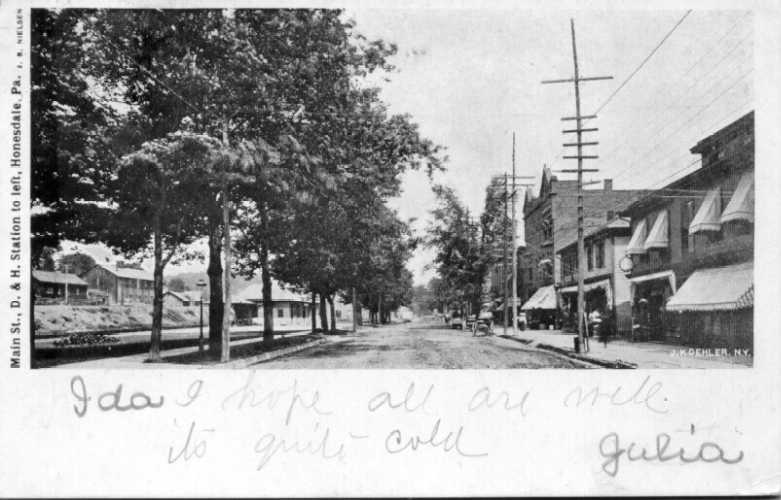 Main St., D. & H. Station to left, Honesdale, Pa. J. B. NIELSEN
J. KOEHLER, N.Y.
Ida I hope all are well.
its quite cold
Julia